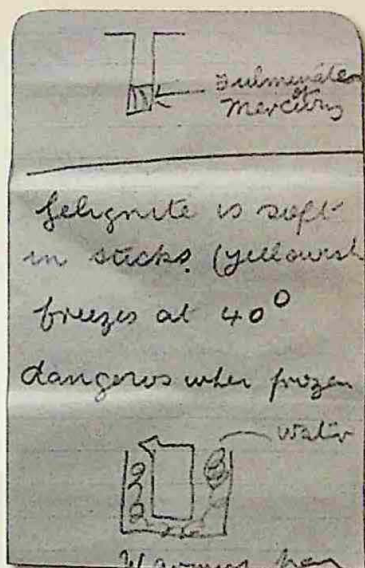 Fulminate
of
Mercury
Gelignite is soft
in sticks. (Yellowish
freezes at 40°
dangerous when frozen
water
Warming pan